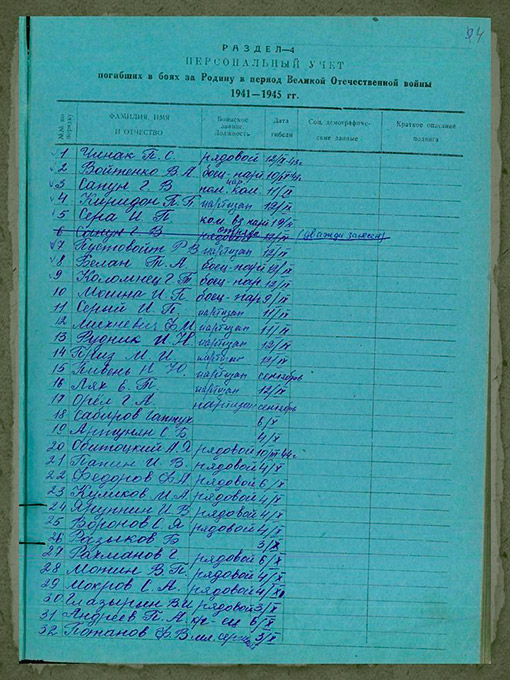 94
РАЗДЕЛ—4
ПЕРСОНАЛЬНЫЙ УЧЕТ
погибших в боях за Родину в период Великой Отечественной войны
1941—1945 гг.
№№ по порядку ФАМИЛИЯ, ИМЯ И ОТЧЕСТВО Воинское звание, Должность Дата гибели Соц. демографические данные Краткое описание подвига
1 Чинак П. С. рядовой 12/IX-43г.
2 Войтенко В А боец-парт 10/IX-43г
3 Сапун Г В пом. ком. 11/IX
4 Киридон П. Б партизан 12/IX
5 Сера И П ком. вз парт 12/IX
6 Сапун Г В рядовой 12/IX (дважды записан)
7 Пустовойт Р В партизан 12/IX
8 Белан Т. А боец-парт 12/IX
9 Коломиец Г Т боец-пар 12/IX
10 Мошна И П боец-пар 9/IX
11 Серый И П. партизан 11/IX
12 Михневич партизан 11/IX
13 Рудник И Н партизан 12/IX
14 Приз М. И. партизан 12/IX
15 Кивень И Ю партизан сентябрь
16 Лях Е. Т. партизан 12/IX
17 Орёл Г А партизан сентябрь
18 Сабиров 6/X
19 С Б 4/X
20 А Я рядовой
21 Папин И В рядовой 4/X
22 Федоров Ф А рядовой 6/X
23 Куликов И. А рядовой 4/X
24 Ярунин И. В рядовой 4/X
25 Воронов С Я рядовой 4/X
26 Разыков Б 3/X
27 Рахманов Г. рядовой 6/X
28 Мотин В. П. рядовой 4/X
29 Мокров С. А. рядовой 4/X
30 Глазырин В И рядовой 3/X
31 Андреев П. А. кр-ец 6/X
32 Потапов Ф. В мл. серж 3/X